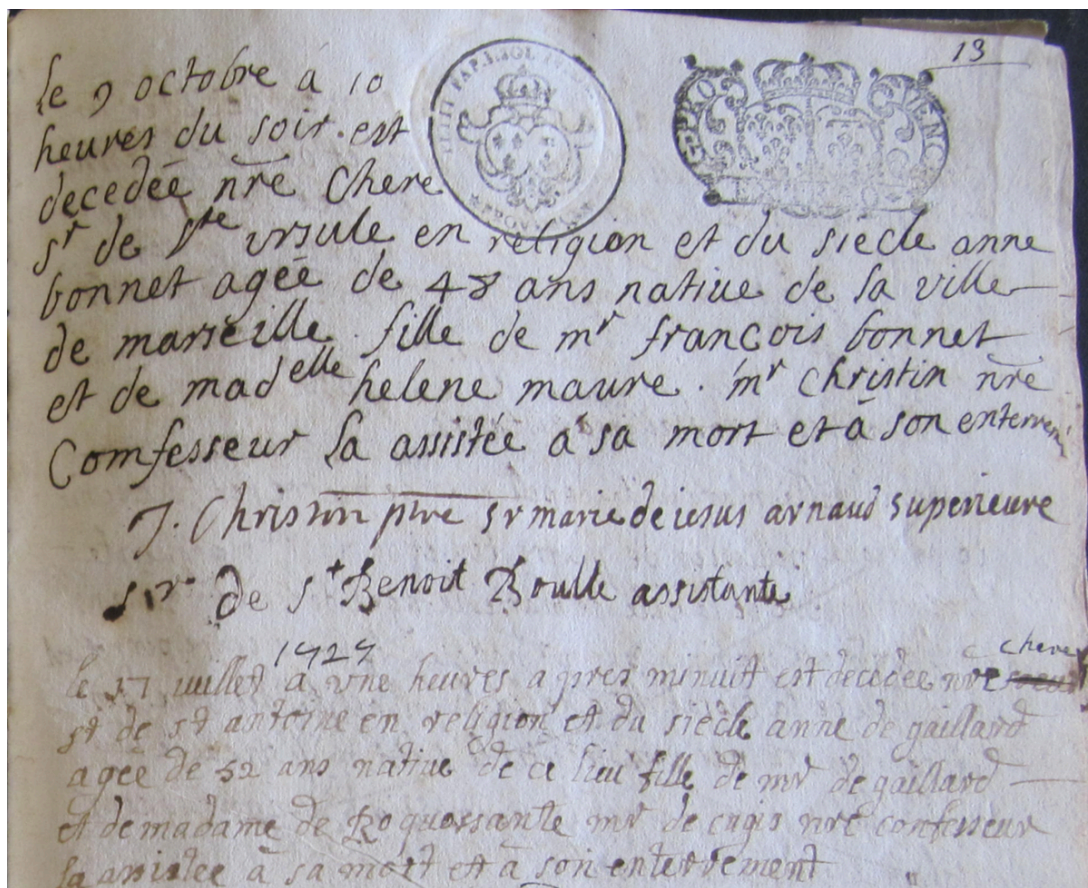 13
le 9 octobre à 10
heures du soir. est
decedée nr̃e chere
sr de ste ursule en religion et du siecle anne
bonnet agée de 48 ans natiue de la ville
de marseille. fille de mr françois bonnet
et de madelle helene maure. mr christin nr̃e
Comfesseur la assistée a sa mort et à son enterremt
J. Christin ptre sr marie de iesus arnaud superieure
sr de st Benoit Boulle assistante
1727
chere
le 17 iuillet à vne heures apres minuit est decedée nr̃e
sr de st antoine en religion et du siècle anne de gaillard
agée de 52 ans natiue de ce lieu fille de mr de gaillard
et de madame de Roquossante mr de cugis nr̃e confesseur
la assistée à sa mort et à son enterrement